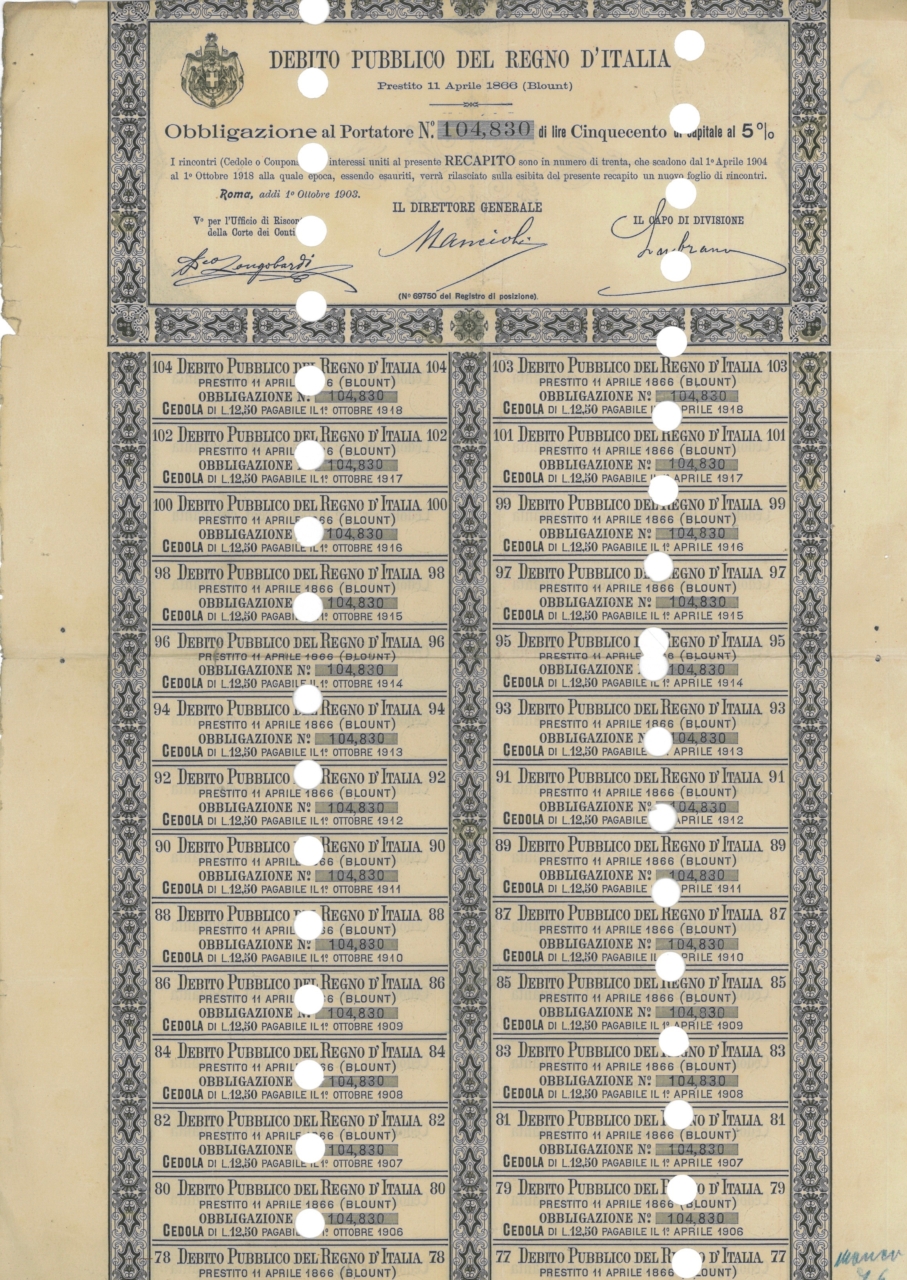 DEBITO PUBBLICO DEL REGNO D'ITALIA
Prestito 11 Aprile 1866 (Blount)
Obbligazione al Portatore Nº. 104,830 di lire Cinquecento capitale al 5%
I rincontri (Cedole o Coupon interessi uniti al presente RECAPITO sono in numero di trenta, che scadono dal 1º Aprile 1904
al 1º Ottobre 1918 alla quale epoca, essendo esauriti, verrà rilasciato sulla esibita del presente recapito un nuovo foglio di rincontri.
Roma, addi 1º Ottobre 1903.
IL DIRETTORE GENERALE
IL CAPO DI DIVISIONE
Vº per l'Ufficio di Riscon
della Corte dei Conti
Mancioli
Longobardi
(Nº 69750 del Registro di posizione).
104 DEBITO PUBBLICO DEL REGNO D'ITALIA 104
PRESTITO 11 APRIL 6 (BLOUNT)
OBBLIGAZIONE N. 104,830
CEDOLA DI L.12,50 PAGABILE IL 1º OTTOBRE 1918
103 DEBITO PUBBLICO DEL REGNO D'ITALIA 103
PRESTITO 11 APRILE 1866 (BLOUNT)
OBBLIGAZIONE Nº 104,830
CEDOLA DI L.12,50 PAGABILE APRILE 1918
102 DEBITO PUBBLICO DEL REGNO D'ITALIA 102
PRESTITO 11 APRIL 6 (BLOUNT)
OBBLIGAZIONE 104,830
CEDOLA DI L.12,50 PAGABILE IL 1º OTTOBRE 1917
101 DEBITO PUBBLICO DEL REGNO D'ITALIA 101
PRESTITO 11 APRILE 1866 (BLOUNT)
OBBLIGAZIONE Nº 104,830
CEDOLA DI L.12,50 PAGABILE APRILE 1917
100 DEBITO PUBBLICO DEL REGNO D'ITALIA 100
PRESTITO 11 APRILE 1866 (BLOUNT)
OBBLIGAZIONE 104,830
CEDOLA DI L.12,50 PAGABILE IL 1º OTTOBRE 1916
99 DEBITO PUBBLICO DEL REGNO D'ITALIA 99
PRESTITO 11 APRILE 1866 (BLOUNT)
OBBLIGAZIONE Nº 104,830
CEDOLA DI L.12,50 PAGABILE IL 1º APRILE 1916
98 DEBITO PUBBLICO DEL REGNO D'ITALIA 98
PRESTITO 11 APRILE 1866 (BLOUNT)
OBBLIGAZIONE 104,830
CEDOLA DI L.12,50 PAGABILE IL 1º OTTOBRE 1915
97 DEBITO PUBBLICO DEL REGNO D'ITALIA 97
PRESTITO 11 APRILE 1866 (BLOUNT)
OBBLIGAZIONE Nº 104,830
CEDOLA DI L.12,50 PAGABILE IL 1º APRILE 1915
96 DEBITO PUBBLICO DEL REGNO D'ITALIA 96
PRESTITO 11 APRILE 1866 (BLOUNT)
OBBLIGAZIONE Nº 104,830
CEDOLA DI L.12,50 PAGABILE IL 1º OTTOBRE 1914
95 DEBITO PUBBLICO REGNO D'ITALIA 95
PRESTITO 11 APRILE 1866 (BLOUNT)
OBBLIGAZIONE 104,830
CEDOLA DI L.12,50 PAGABILE IL 1º APRILE 1914
94 DEBITO PUBBLICO REGNO D'ITALIA 94
PRESTITO 11 APRILE 1866 (BLOUNT)
OBBLIGAZIONE Nº 104,830
CEDOLA DI L.12,50 PAGABILE IL 1º OTTOBRE 1913
93 DEBITO PUBBLICO DEL REGNO D'ITALIA 93
PRESTITO 11 APRILE 1866 (BLOUNT)
OBBLIGAZIONE Nº 104,830
CEDOLA DI L.12,50 PAGABILE IL 1º APRILE 1913
92 DEBITO PUBBLICO REGNO D'ITALIA 92
PRESTITO 11 APRILE 1866 (BLOUNT)
OBBLIGAZIONE Nº 104,830
CEDOLA DI L.12,50 PAGABILE IL 1º OTTOBRE 1912
91 DEBITO PUBBLICO DEL REGNO D'ITALIA 91
PRESTITO 11 APRILE 1866 (BLOUNT)
OBBLIGAZIONE Nº 104,830
CEDOLA DI L.12,50 PAGABILE APRILE 1912
90 DEBITO PUBBLICO REGNO D'ITALIA 90
PRESTITO 11 APRIL 66 (BLOUNT)
OBBLIGAZIONE Nº 104,830
CEDOLA DI L.12,50 PAGABILE IL 1º OTTOBRE 1911
89 DEBITO PUBBLICO DEL REGNO D'ITALIA 89
PRESTITO 11 APRILE 1866 (BLOUNT)
OBBLIGAZIONE Nº 104,830
CEDOLA DI L.12,50 PAGABILE PRILE 1911
88 DEBITO PUBBLICO REGNO D'ITALIA 88
PRESTITO 11 APRIL 6 (BLOUNT)
OBBLIGAZIONE Nº 104,830
CEDOLA DI L.12,50 PAGABILE IL 1º OTTOBRE 1910
87 DEBITO PUBBLICO DEL REGNO D'ITALIA 87
PRESTITO 11 APRILE 1866 (BLOUNT)
OBBLIGAZIONE Nº 104,830
CEDOLA DI L.12,50 PAGABILE PRILE 1910
86 DEBITO PUBBLICO DEL REGNO D'ITALIA 86
PRESTITO 11 APRIL 6 (BLOUNT)
OBBLIGAZIONE N. 104,830
CEDOLA DI L.12,50 PAGABILE IL 1º OTTOBRE 1909
85 DEBITO PUBBLICO DEL REGNO D'ITALIA 85
PRESTITO 11 APRILE 1866 (BLOUNT)
OBBLIGAZIONE Nº 104,830
CEDOLA DI L.12,50 PAGABILE IL 1º APRILE 1909
84 DEBITO PUBBLICO DEL REGNO D'ITALIA 84
PRESTITO 11 APRIL 6 (BLOUNT)
OBBLIGAZIONE 104,830
CEDOLA DI L.12,50 PAGABILE IL 1º OTTOBRE 1908
83 DEBITO PUBBLICO DEL REGNO D'ITALIA 83
PRESTITO 11 APRILE 1866 (BLOUNT)
OBBLIGAZIONE Nº 104,830
CEDOLA DI L.12,50 PAGABILE IL 1º APRILE 1908
82 DEBITO PUBBLICO DEL REGNO D'ITALIA 82
PRESTITO 11 APRILE 66 (BLOUNT)
OBBLIGAZIONE 104,830
CEDOLA DI L.12,50 PAGABILE IL 1º OTTOBRE 1907
81 DEBITO PUBBLICO DEL NO D'ITALIA 81
PRESTITO 11 APRILE 1866 (BLOUNT)
OBBLIGAZIONE Nº 104,830
CEDOLA DI L.12,50 PAGABILE IL 1º APRILE 1907
80 DEBITO PUBBLICO DEL REGNO D'ITALIA 80
PRESTITO 11 APRILE 1866 (BLOUNT)
OBBLIGAZIONE 104,830
CEDOLA DI L.12,50 PAGABILE IL 1º OTTOBRE 1906
79 DEBITO PUBBLICO DEL NO D'ITALIA 79
PRESTITO 11 APRILE 1866 (BLOUNT)
OBBLIGAZIONE Nº 104,830
CEDOLA DI L.12,50 PAGABILE IL 1º APRILE 1906
78 DEBITO PUBBLICO DEL REGNO D'ITALIA 78
PRESTITO 11 APRILE 1866 (BLOUNT)
77 DEBITO PUBBLICO DEL NO D'ITALIA 77
PRESTITO 11 APRILE 1866 (BLOUNT)